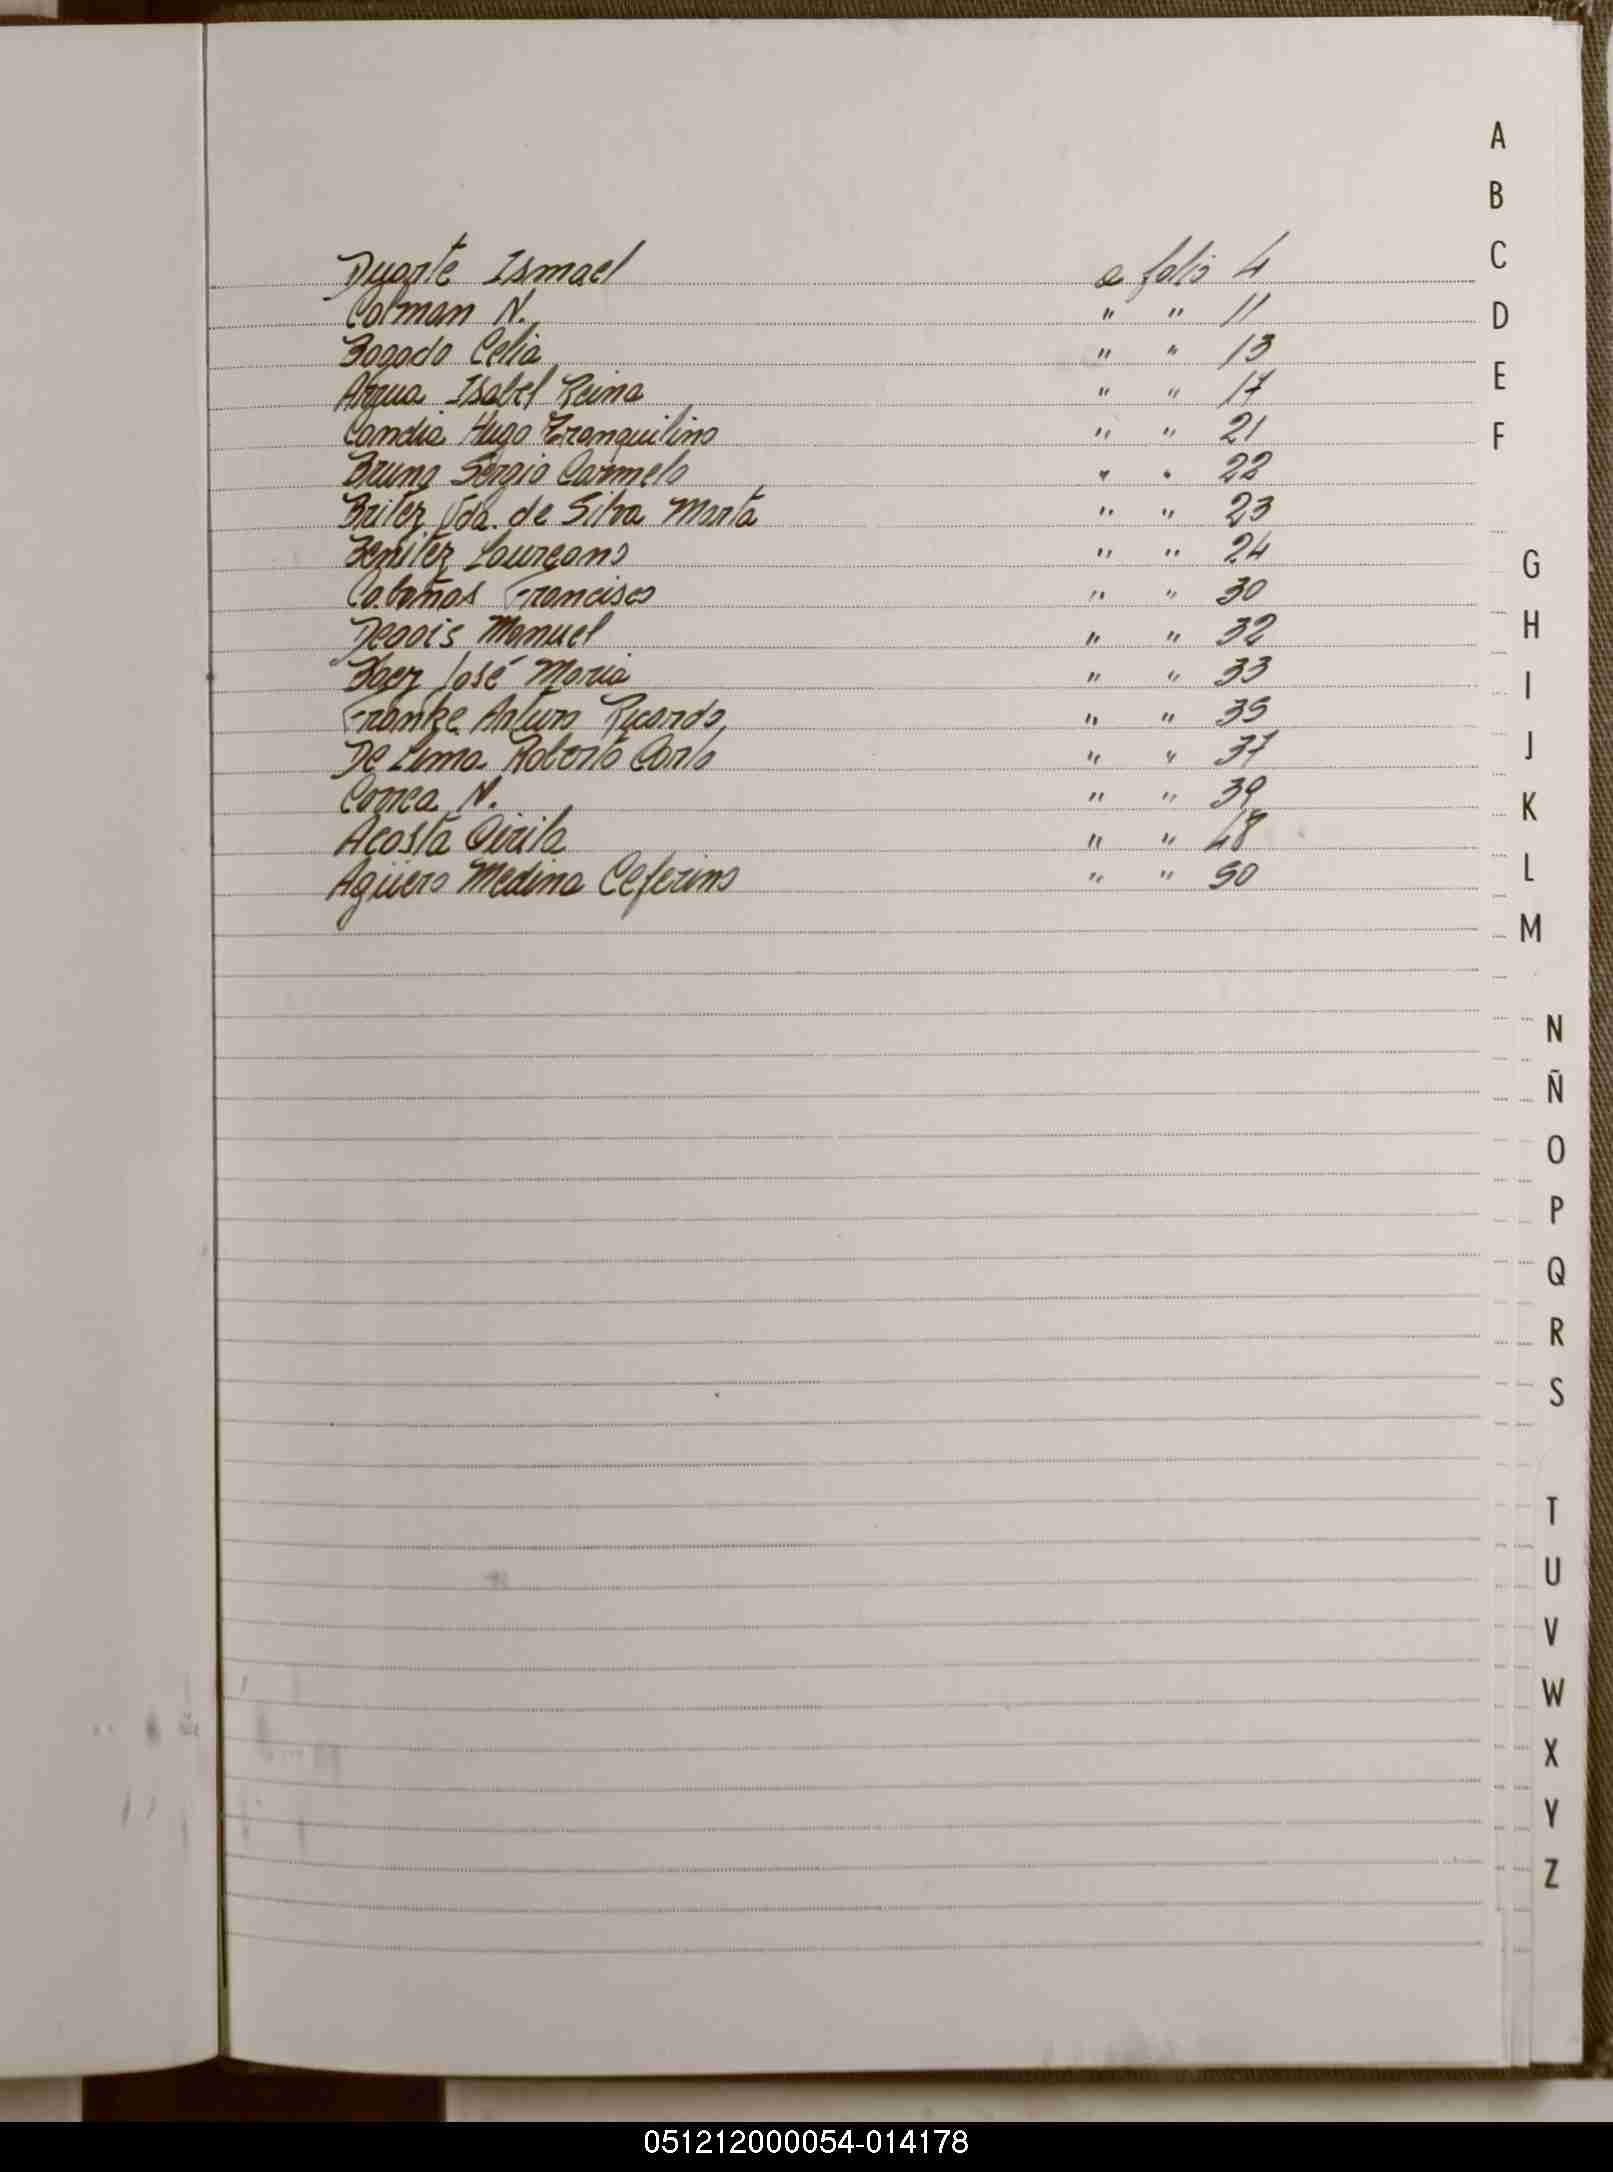 Duarte Ismael a folio 4
Colman N. " " 11
Bogado Celia " " 13
Arzua Isabel Reina " " 17
Candia Hugo Tranquilino " " 21
Bruno Sergio Carmelo " " 22
Britez Vda. de Silva Marta " " 23
Benitez Laureano " " 24
Cabañas Francisco " " 30
Manuel " " 32
Baez José Maria " " 33
Franke Arturo Ricardo " " 35
De Lima Roberto Carlo " " 37
Correa N. " " 39
Acosta Cirila " " 48
Agüero Medina Ceferino " " 50
A
B
C
D
E
F
G
H
I
J
K
L
M
N
Ñ
O
P
Q
R
S
T
U
V
W
X
Y
Z
051212000054-014178